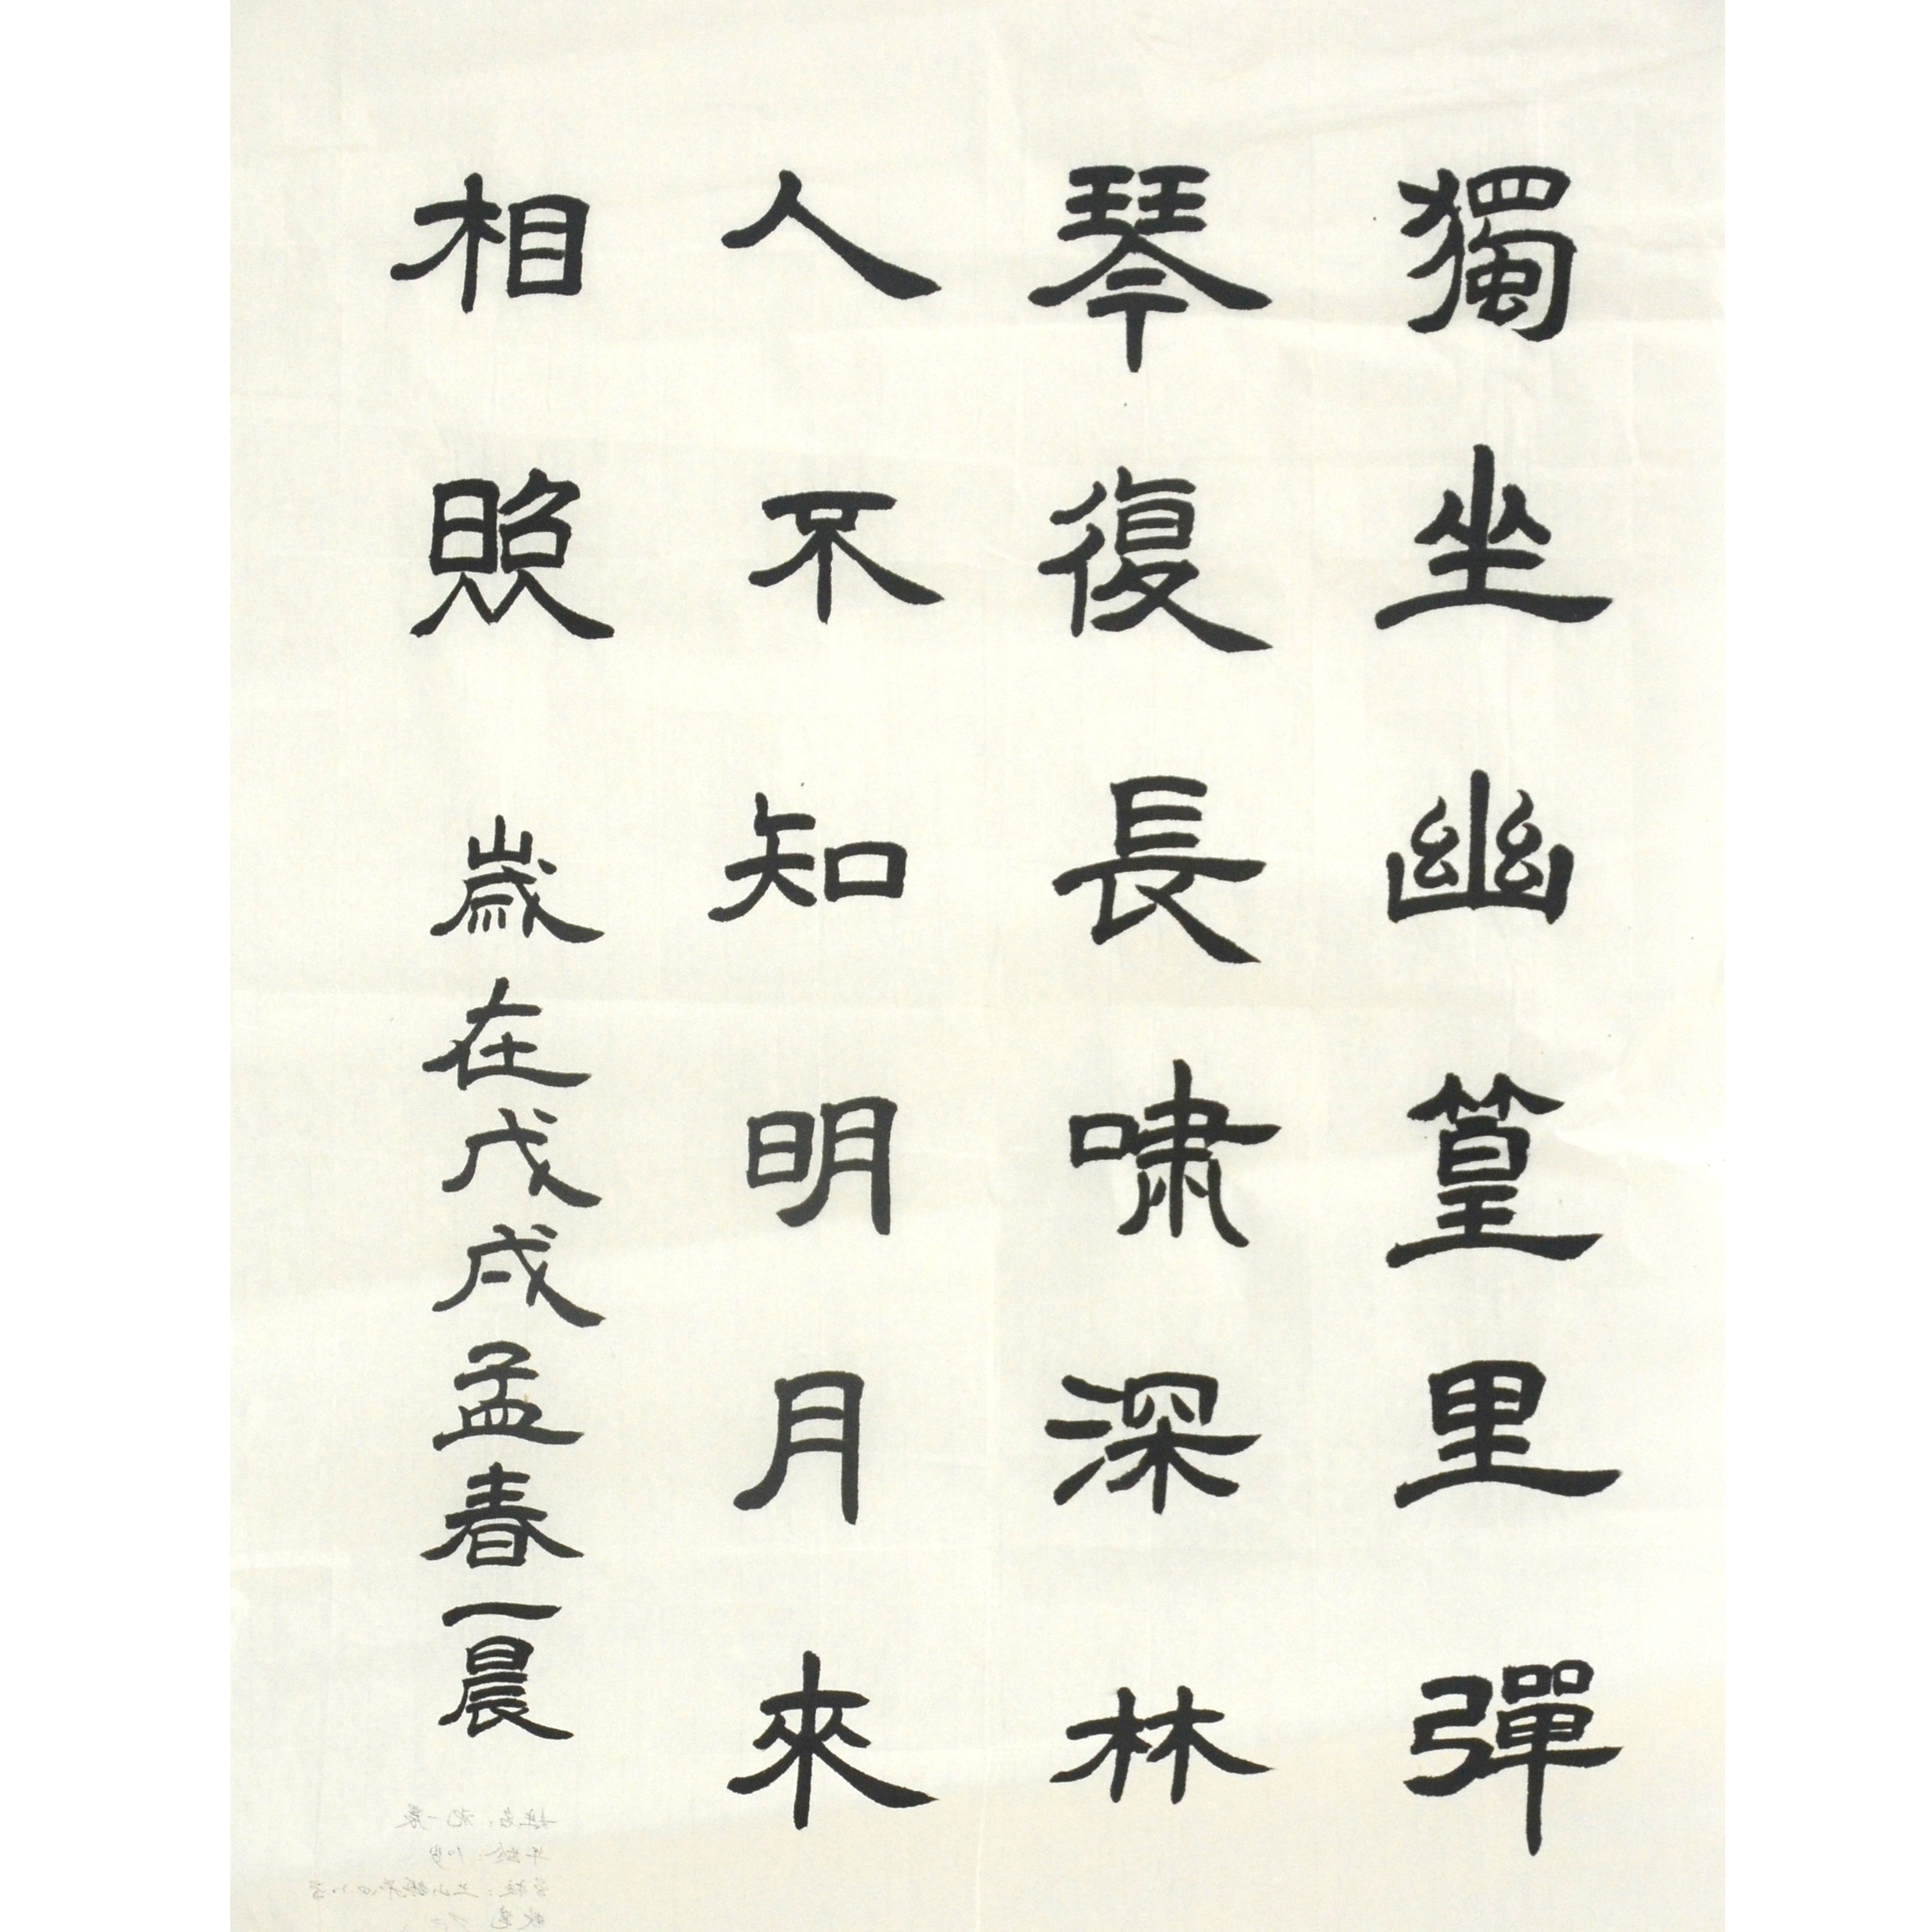 獨坐幽篁里彈
琴復長嘯深林
人不知明月來
相照 歲在戊戌孟春一晨